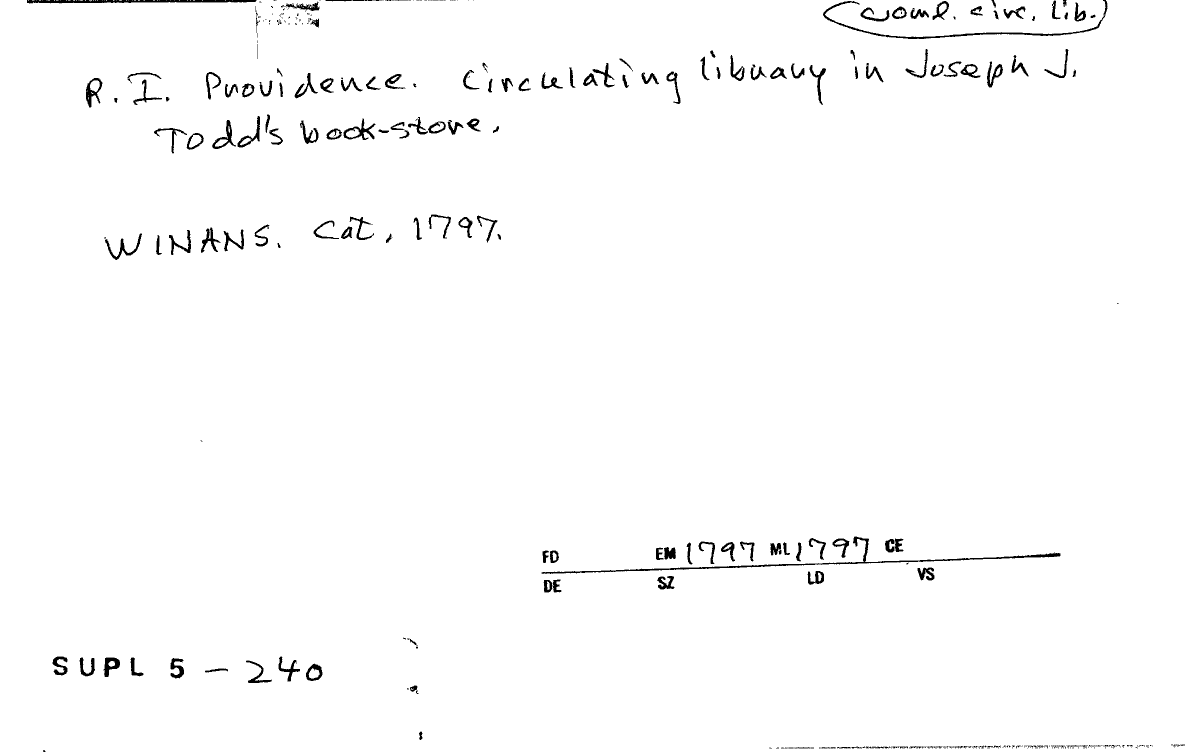 (Coml. circ. lib.)
R.I. Providence. Circulating library in Joseph J.
Todd's book-store.
WINANS. Cat, 1797.
FD EM 1797 ML 1797 CE
DE SZ LD VS
SUPL 5 - 240